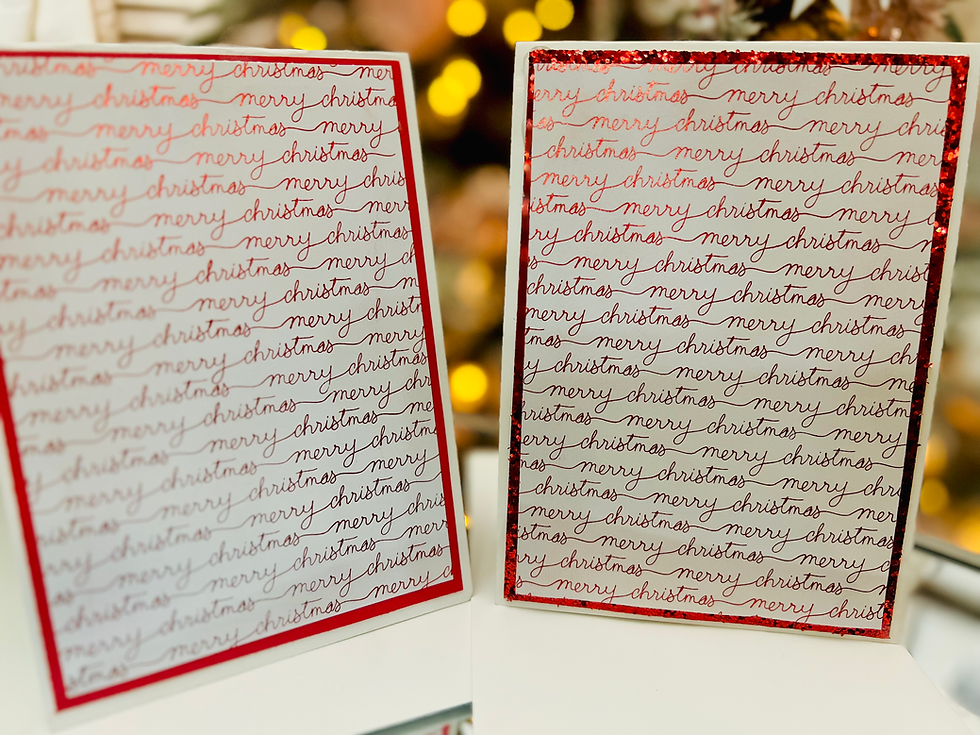 christmas merry christmas mer
merry christmas merry christma
tmas merry christmas merry
y christmas merry christmas
merry christmas merry chris
christmas merry christmas merr
merry christmas merry christmas
tmas merry christmas merry ch
y christmas merry christmas m
merry christmas merry christm
christmas merry christmas merry
merry christmas merry christmas
mas merry christmas merry chr
y christmas merry christmas me
merry christmas merry christm
istmas merry christmas merry
rry christmas merry christmas
as merry christmas merry chris
christmas merry christmas merr
merry christmas merry christmas
stmas merry christmas merry c
ristmas merry christmas
erry christmas merry christmas
as merry christmas merry chri
christmas merry christmas mer
merry christmas merry christma
istmas merry christmas merry
rry christmas merry christmas m
s merry christmas merry christ
christmas merry christmas merry
merry christmas merry christmas
tmas merry christmas merry ch
y christmas merry christmas me
merry christmas merry christm
hristmas merry christmas merry
erry christmas merry christmas
mas merry christmas merry chr
christmas merry christmas mer
merry christmas merry christmas
istmas merry christmas merry c
rry christmas merry christmas
merry christmas merry christ